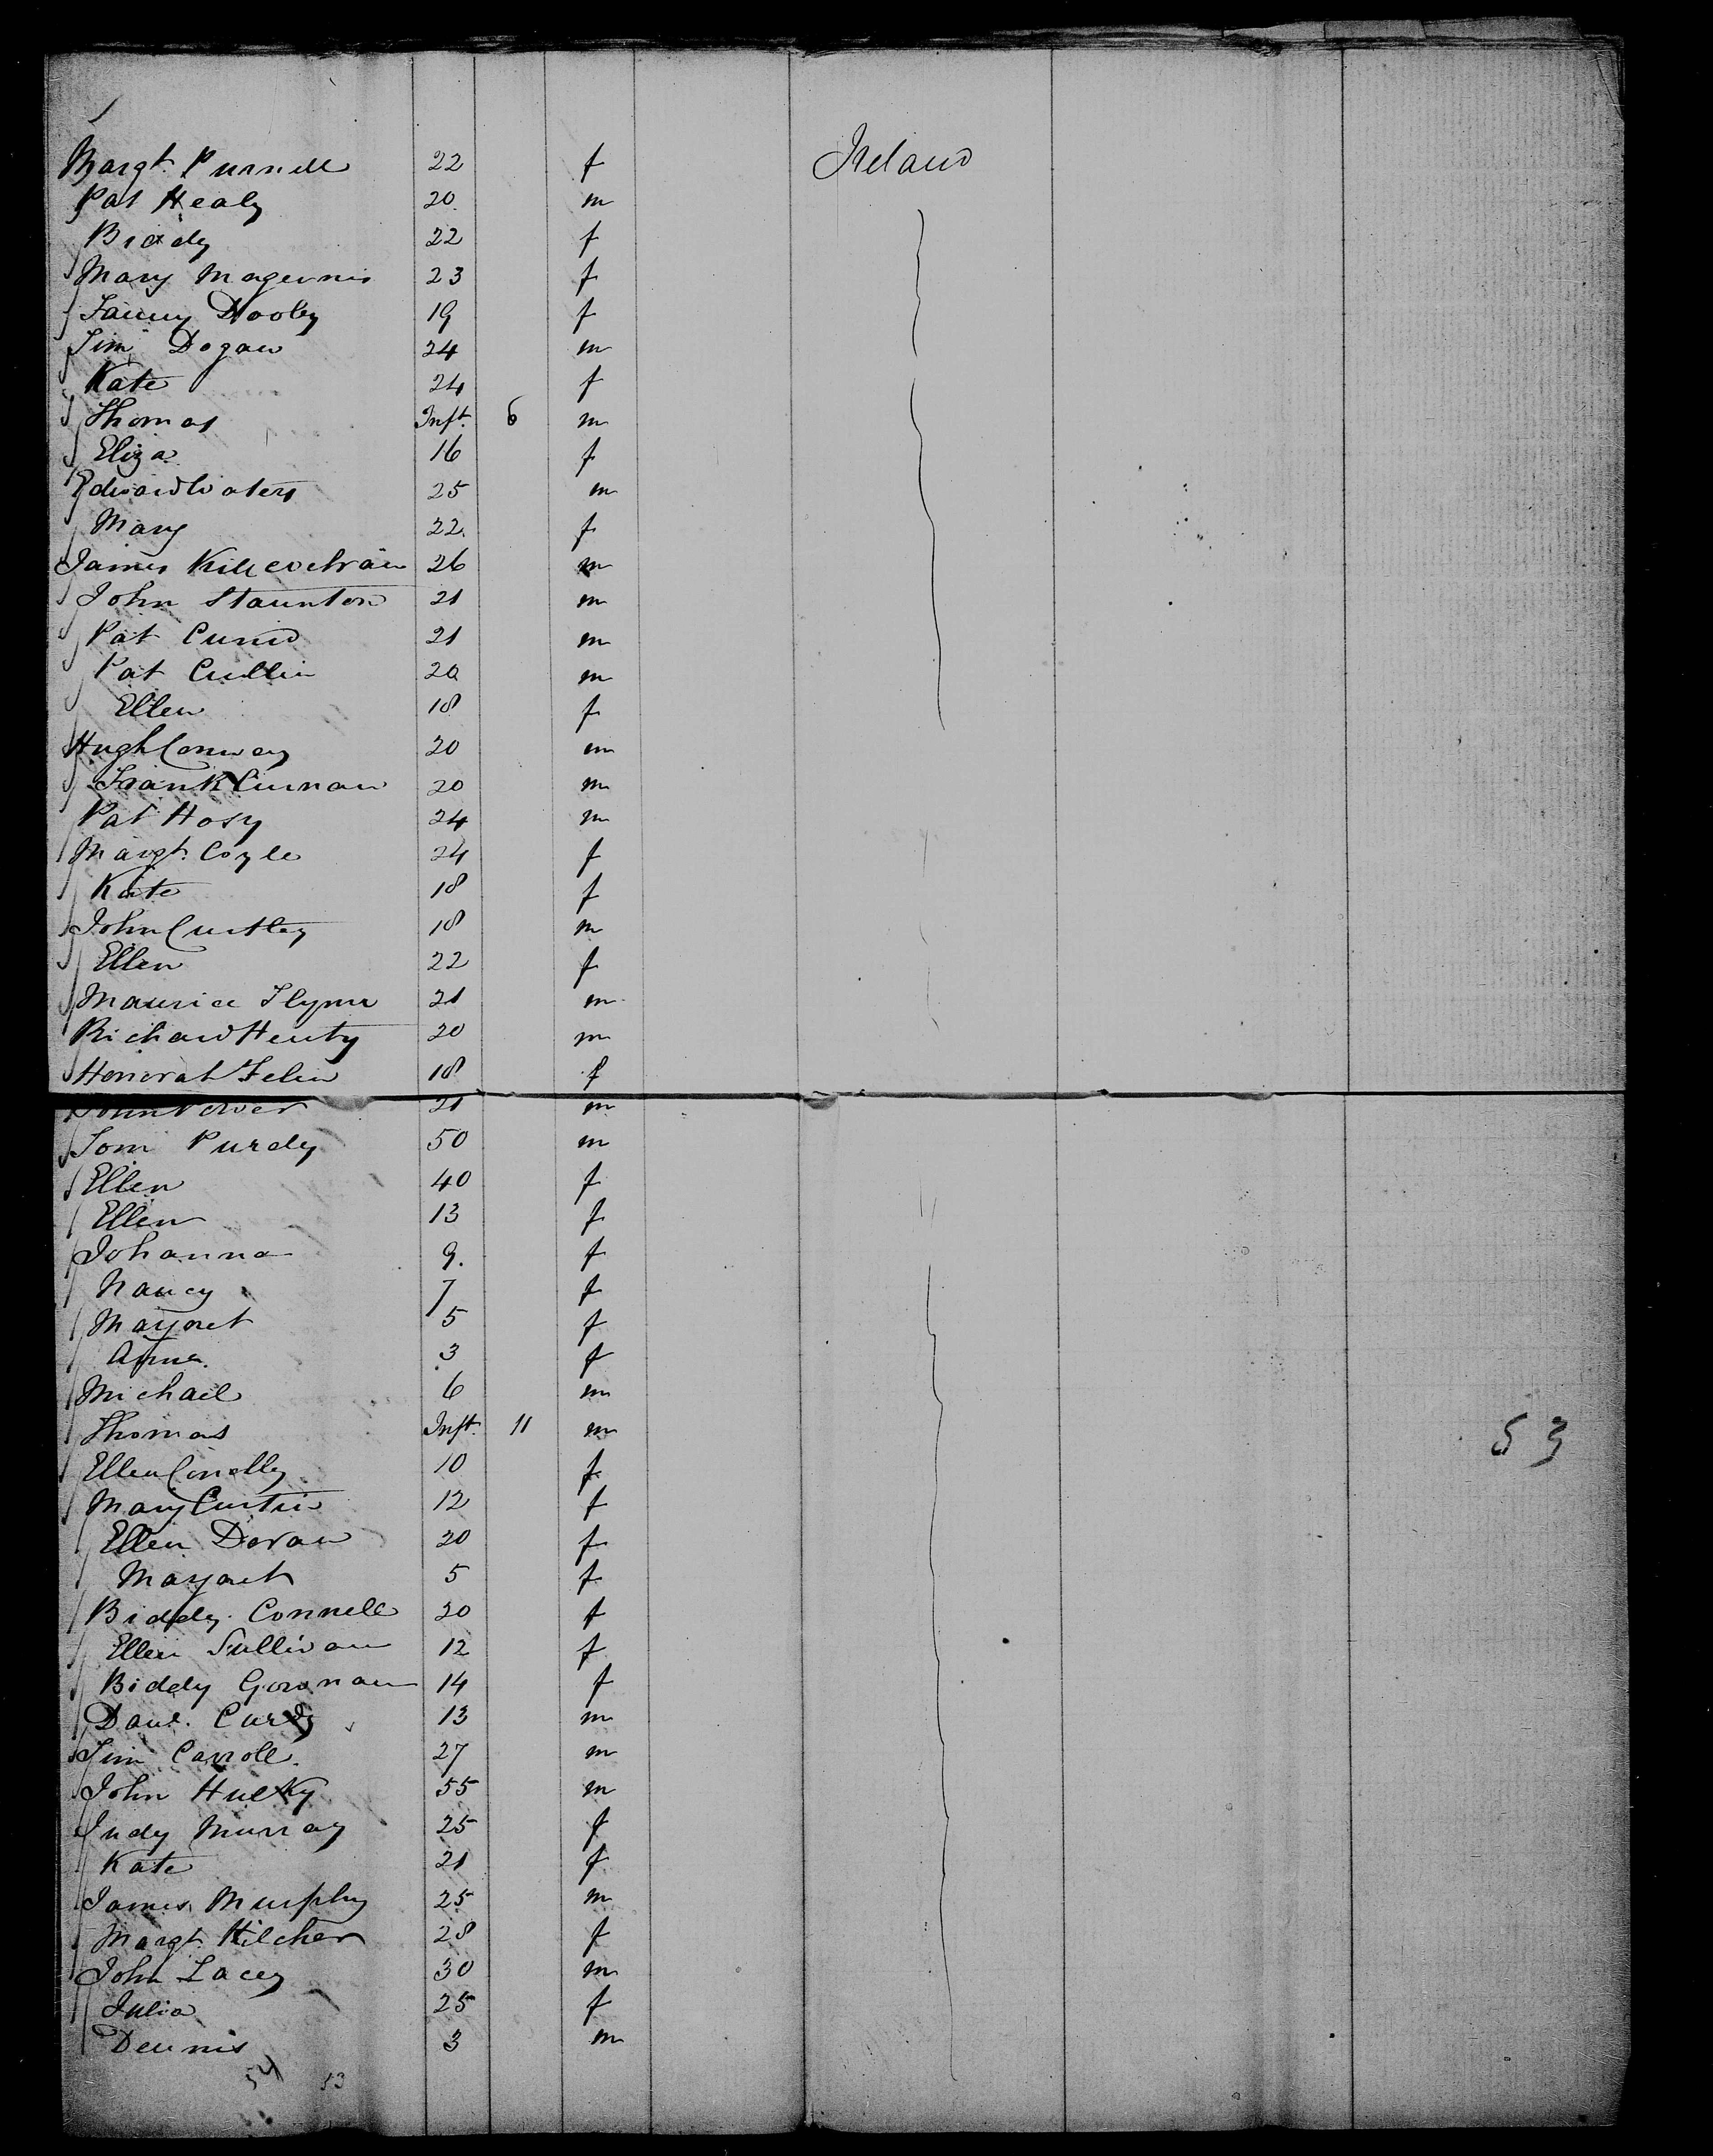 Margt. Purnell 22 f Ireland
Pat Healy 20 m
Biddy 22 f
Mary Magennis 23 f
Fanny Dooley 19 f
Jim Dogan 24 m
Kate 24 f
Thomas Inft. 6 m
Eliza 16 f
Edward Waters 25 m
Mary 22 f
James Killcochran 26 m
John Staunton 21 m
Pat 21 m
Pat Cullin 20 m
Ellen 18 f
Hugh Conway 20 m
Frank Curnan 20 m
Pat Hosy 24 m
Margt. Coyle 24 f
Kate 18 f
John Curtley 18 m
Ellen 22 f
Maurice Flynn 21 m
Richard Henty 20 m
Honorah 18 f
John Power 21 m
Tom Purdy 50 m
Ellen 40 f
Ellen 13 f
Johanna 9. f
Nancy 7 f
Margaret 5 f
Anna 3 f
Michael 6 m
Thomas Inft. 11 m
53
Ellen Conelly 10 f
Mary Curtin 12 f
Ellen Doran 20 f
Margaret 5 f
Biddy Connell 20 f
Ellen Sullivan 12 f
Biddy Gownan 14 f
Danl. 13 m
Jim Carroll 27 m
John 55 m
Judy Murray 25 f
Kate 21 f
James Murphy 25 m
Margt. Hilcher 28 f
John Lacey 30 m
Julia 25 f
Dennis 3 m
54 53